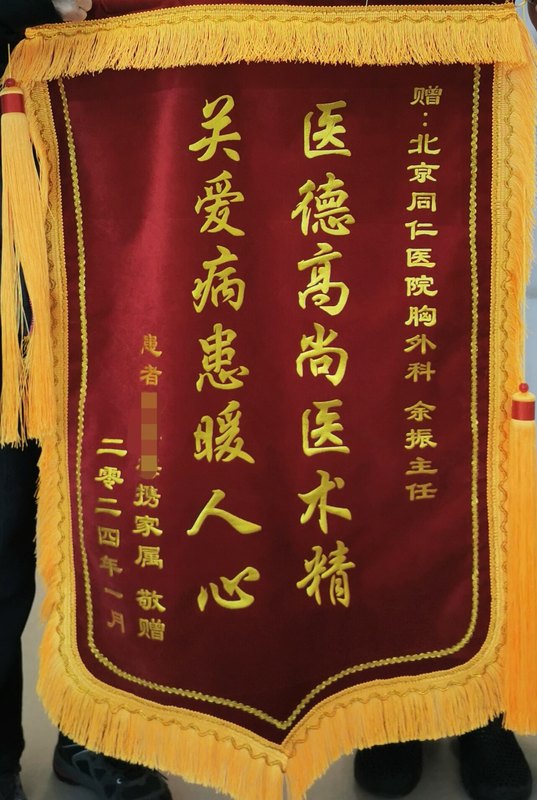 赠：北京同仁医院胸外科 余振主任
医德高尚医术精
关爱病患暖人心
患者 携家属 敬赠
二零二四年一月